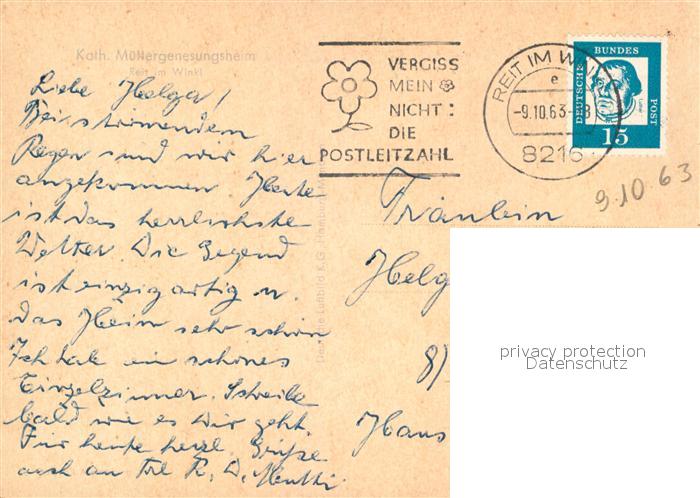 Kath. Müttergenesungsheim
Reit im Winkl
Liebe Helga!
Bei strömendem
Regen sind wir hier
angekommen. Heute
ist das herrlichste
Wetter. Die Gegend
ist einzigartig u.
das Heim sehr schön
Ich hab ein schönes
Einzelzimmer. Schreibe
bald wie es Dir geht.
Für heute herzl. Grüße
auch an Frl. R. D. Mutti
VERGISS
MEIN
NICHT:
DIE
POSTLEITZAHL
REIT IM WINKL
e
-9.10.63-
8216
DEUTSCHE BUNDES POST
15
9.10.63
Fräulein
Helg
8)
Hans
privacy protection
Datenschutz